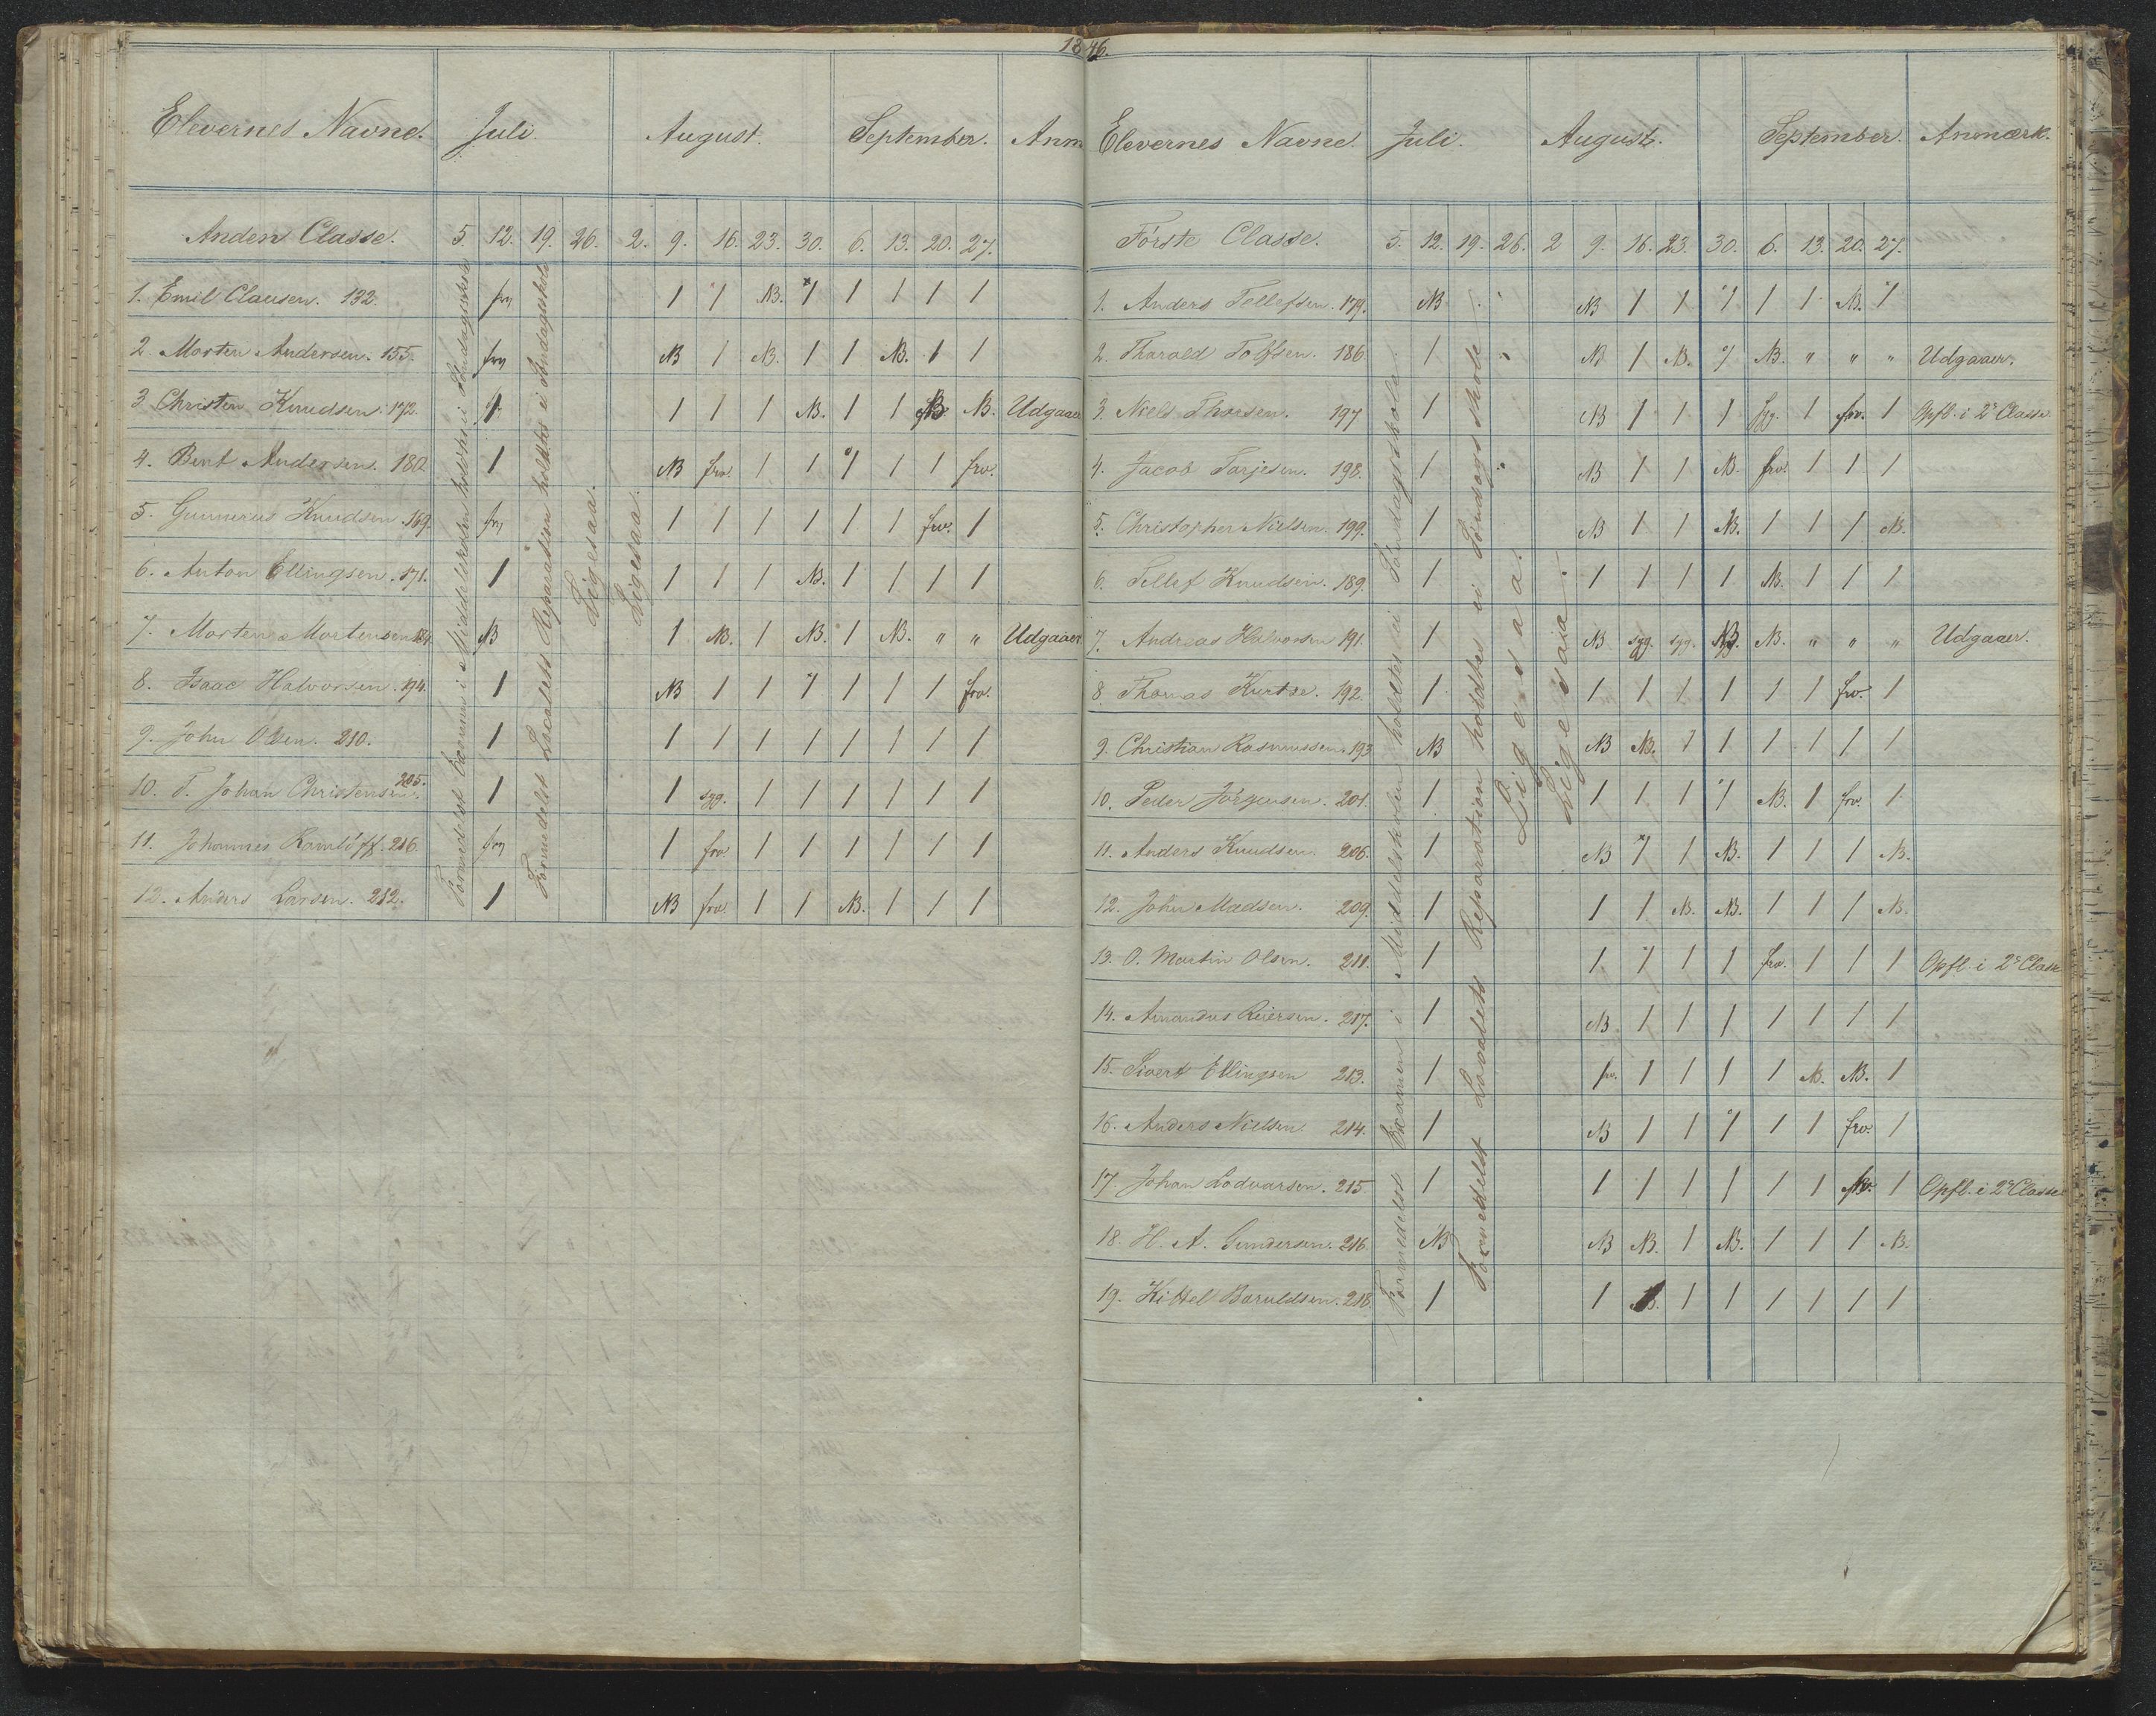 1846.
Elevernes Navne. Juli August. September. Anm
Anden Classe. 5. 12. 19. 26. 2. 9. 16. 23. 30. 6. 13. 20. 27.
1. Emil Clausen. 132. frv 1 1 NB. 1 1 1 1 1
2. Morten Andersen. 155. frv NB 1 NB. 1 1 NB. 1 1
3 Christen Knudsen. 172. 1 1 1 1 NB. 1 1 NB. Udgaaer
4. Bent Andersen. 180 1 NB frv. 1 1 1 1 1 frv.
5. Gunnerus Knudsen. 169. frv 1 1 1 1 1 1 frv. 1
6. Anton Ellingsen. 171. 1 1 1 1 NB. 1 1 1 1
7. Morten Mortensen NB 1 NB. 1 NB. 1 NB. " " Udgaaer
8. Isaac Halvorsen. 194. 1 NB 1 1 1 1 1 1 frv.
9. John Olsen. 210. 1 1 1 1 1 1 1 1 1
10. T. Johan Christensen. 205. 1 1 syg. 1 1 1 1 1 1
11. Johannes 216. frv 1 frv. 1 1 1 1 1 1
12. Anders Larsen. 212. 1 NB frv. 1 1 NB. 1 1 1
Formedelst Examen i Middelskolen holdtes ei Søndagsskole
Formedelst Localets Reparation holdtes ei Søndagsskole
Ligesaa.
Ligesaa.
Elevernes Navne. Juli. August. September. Anmærk.
Første Classe. 5. 12. 19. 26. 2 9. 16. 23. 30. 6. 13. 20. 27.
1. Anders Tellefsen. 179. NB NB 1 1 1 1 1 NB. 1
2. Tharald Tolfsen. 186. 1 NB 1 NB. 1 NB. " " " Udgaaer.
3. Niels Thorsen. 197 1 NB 1 1 1 syg. 1 frv. 1 Opfl. i 2den Classe.
4. Jacob Tarjesen. 198. 1 NB 1 1 NB. frv. 1 1 1
5. Christopher Nielsen. 199. 1 NB 1 1 NB. 1 1 1 NB.
6. Tellef Knudsen. 189. 1 1 1 1 1 NB. 1 1 1
7. Andreas Halvorsen 191. 1 NB syg. syg. NB. " " " Udgaaer.
8 Thomas Kurtze. 192. 1 1 1 1 1 1 1 frv. 1
9. Christian Rasmussen. 193 NB NB NB. 1 1 1 1 1 1
10. Peder Jörgensen. 201. 1 1 1 1 1 NB. 1 frv. 1
11. Anders Knudsen. 206. 1 NB 1 1 NB. 1 1 1 NB.
12. John Madsen. 209. 1 1 1 NB. NB. 1 1 1 NB.
13. O. Martin Olsen. 211. 1 1 1 1 1 frv. 1 1 1 Opfl. i 2den Classe
14. Amandus Reiersen. 217. 1 NB. 1 1 1 1 1 1 1
15. Sivert Ellingsen 213. 1 frv. 1 1 1 1 NB. NB. 1
16. Anders Nielsen. 214. 1 NB 1 1 1 1 1 frv. 1
17. Johan Lodvarsen. 215 1 1 1 1 1 1 1 1 Opfl. i 2den Classe
18. H. A. Gundersen. 216. NB NB NB. 1 NB. 1 1 1 NB.
19. Kittel Baruldsen. 218. 1 1 1 1 1 1 1 1
Formedelst Examen i Middelskolen holdtes ei Søndagsskole.
Formedelst Localets Reparation holdtes ei Søndagsskole.
Ligesaa.
Ligesaa.